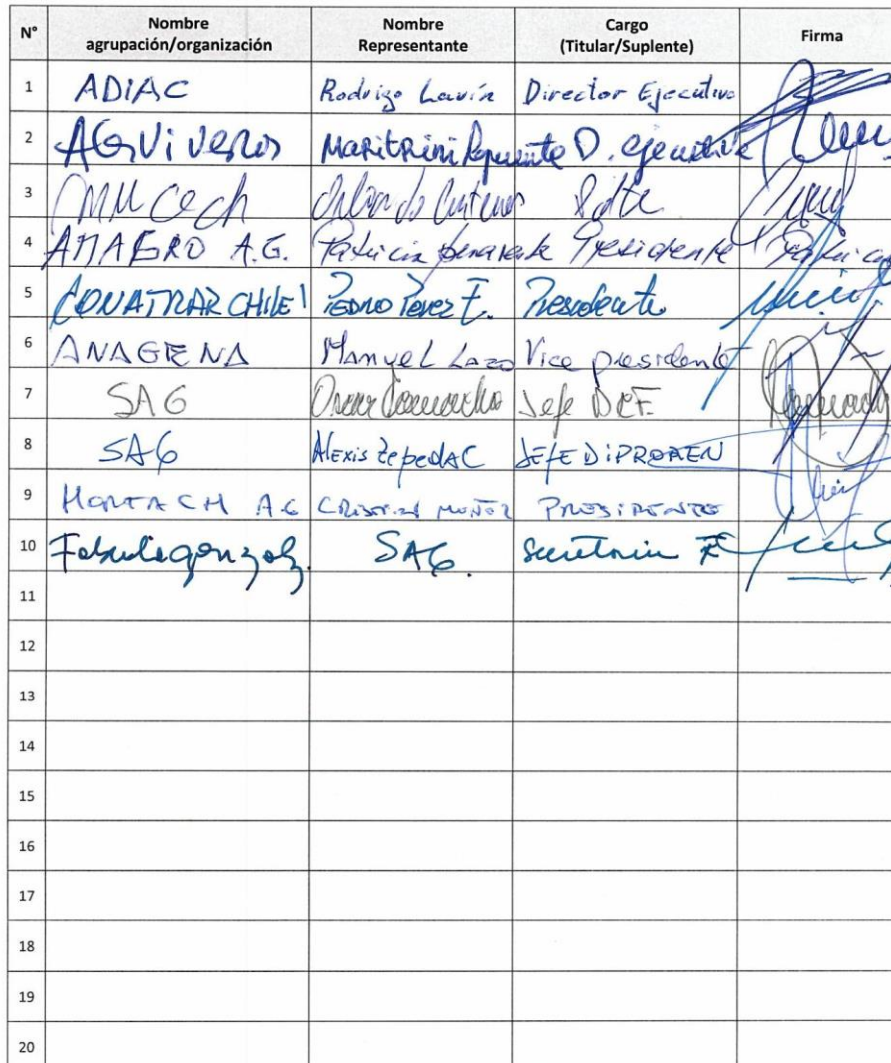 N° Nombre agrupación/organización Nombre Representante Cargo (Titular/Suplente) Firma
1 ADIAC Rodrigo Lavín Director Ejecutivo
2 AG Viveros Maritrini Lapuente D. ejecutiva
3 MUCech Orlando Contreras Pdte
4 ANAGRO A.G. Patricia Presidente
5 CONATRAR CHILE Pedro Perez F. Presidente
6 ANAGENA Manuel Lazo Vice presidente
7 SAG Oscar Camacho Jefe
8 SAG Alexis Zepeda C JEFE DiPROREN
9 HORTACH AG CRISTIAN MUÑOZ PRESIDENTE
10 Fabiola gonzalez. SAG. Secretaria
11
12
13
14
15
16
17
18
19
20